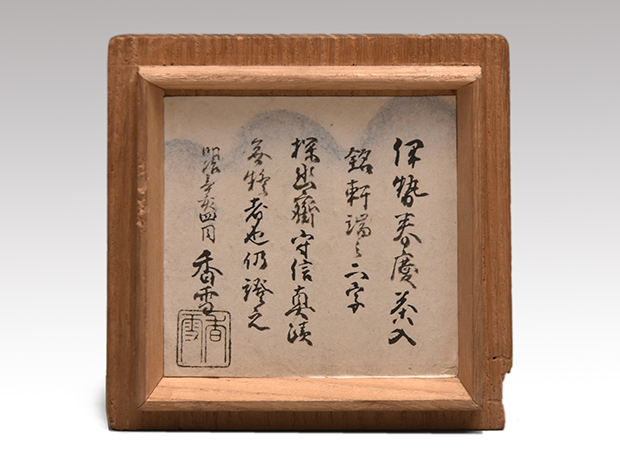 伊勢春慶茶入
銘軒端之二字
探幽齋守信真蹟
無疑者也仍證之
明治辛亥四月 香雪
香雪